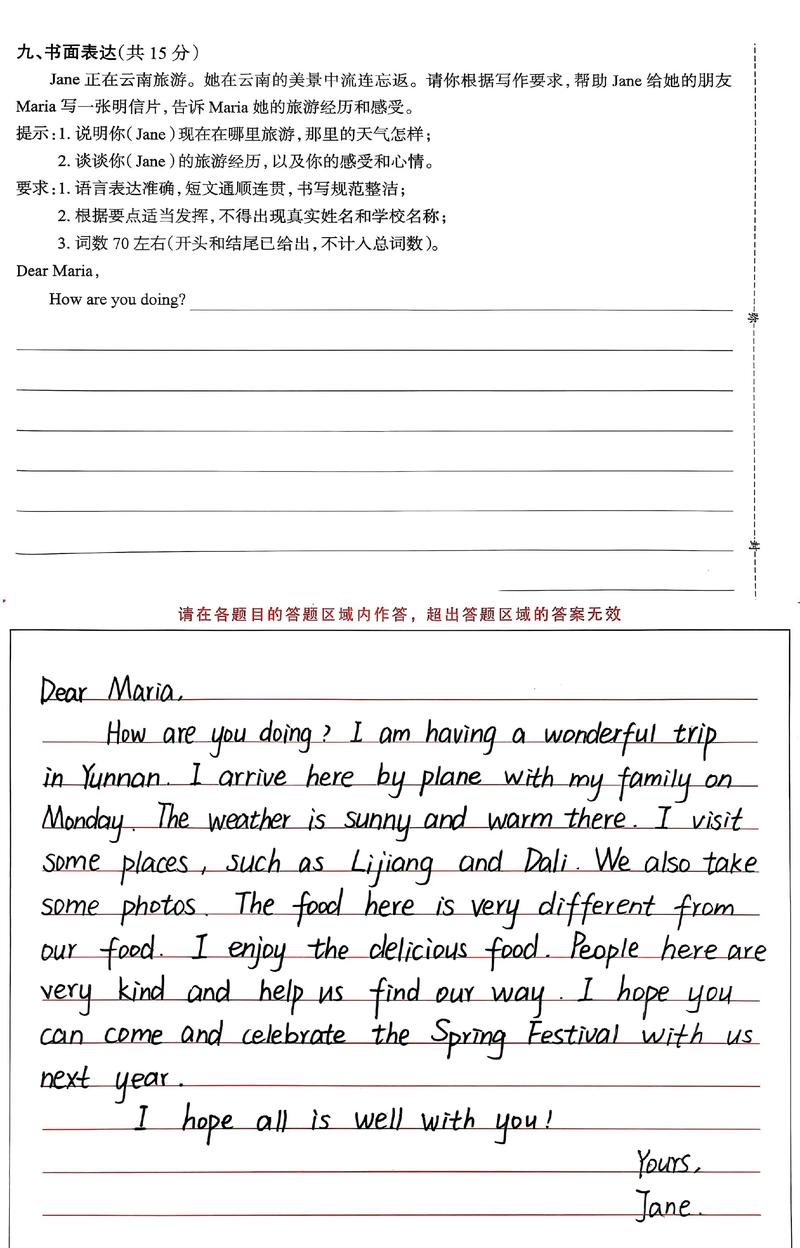 九、书面表达(共 15 分)
Jane 正在云南旅游。她在云南的美景中流连忘返。请你根据写作要求,帮助 Jane 给她的朋友
Maria 写一张明信片,告诉 Maria 她的旅游经历和感受。
提示:1. 说明你(Jane)现在在哪里旅游,那里的天气怎样;
2. 谈谈你(Jane)的旅游经历,以及你的感受和心情。
要求:1. 语言表达准确,短文通顺连贯,书写规范整洁;
2. 根据要点适当发挥,不得出现真实姓名和学校名称;
3. 词数 70 左右(开头和结尾已给出,不计入总词数)。
Dear Maria,
How are you doing?
请在各题目的答题区域内作答，超出答题区域的答案无效
Dear Maria,
How are you doing? I am having a wonderful trip
in Yunnan. I arrive here by plane with my family on
Monday. The weather is sunny and warm there. I visit
some places, such as Lijiang and Dali. We also take
some photos. The food here is very different from
our food. I enjoy the delicious food. People here are
very kind and help us find our way. I hope you
can come and celebrate the Spring Festival with us
next year.
I hope all is well with you!
Yours,
Jane.